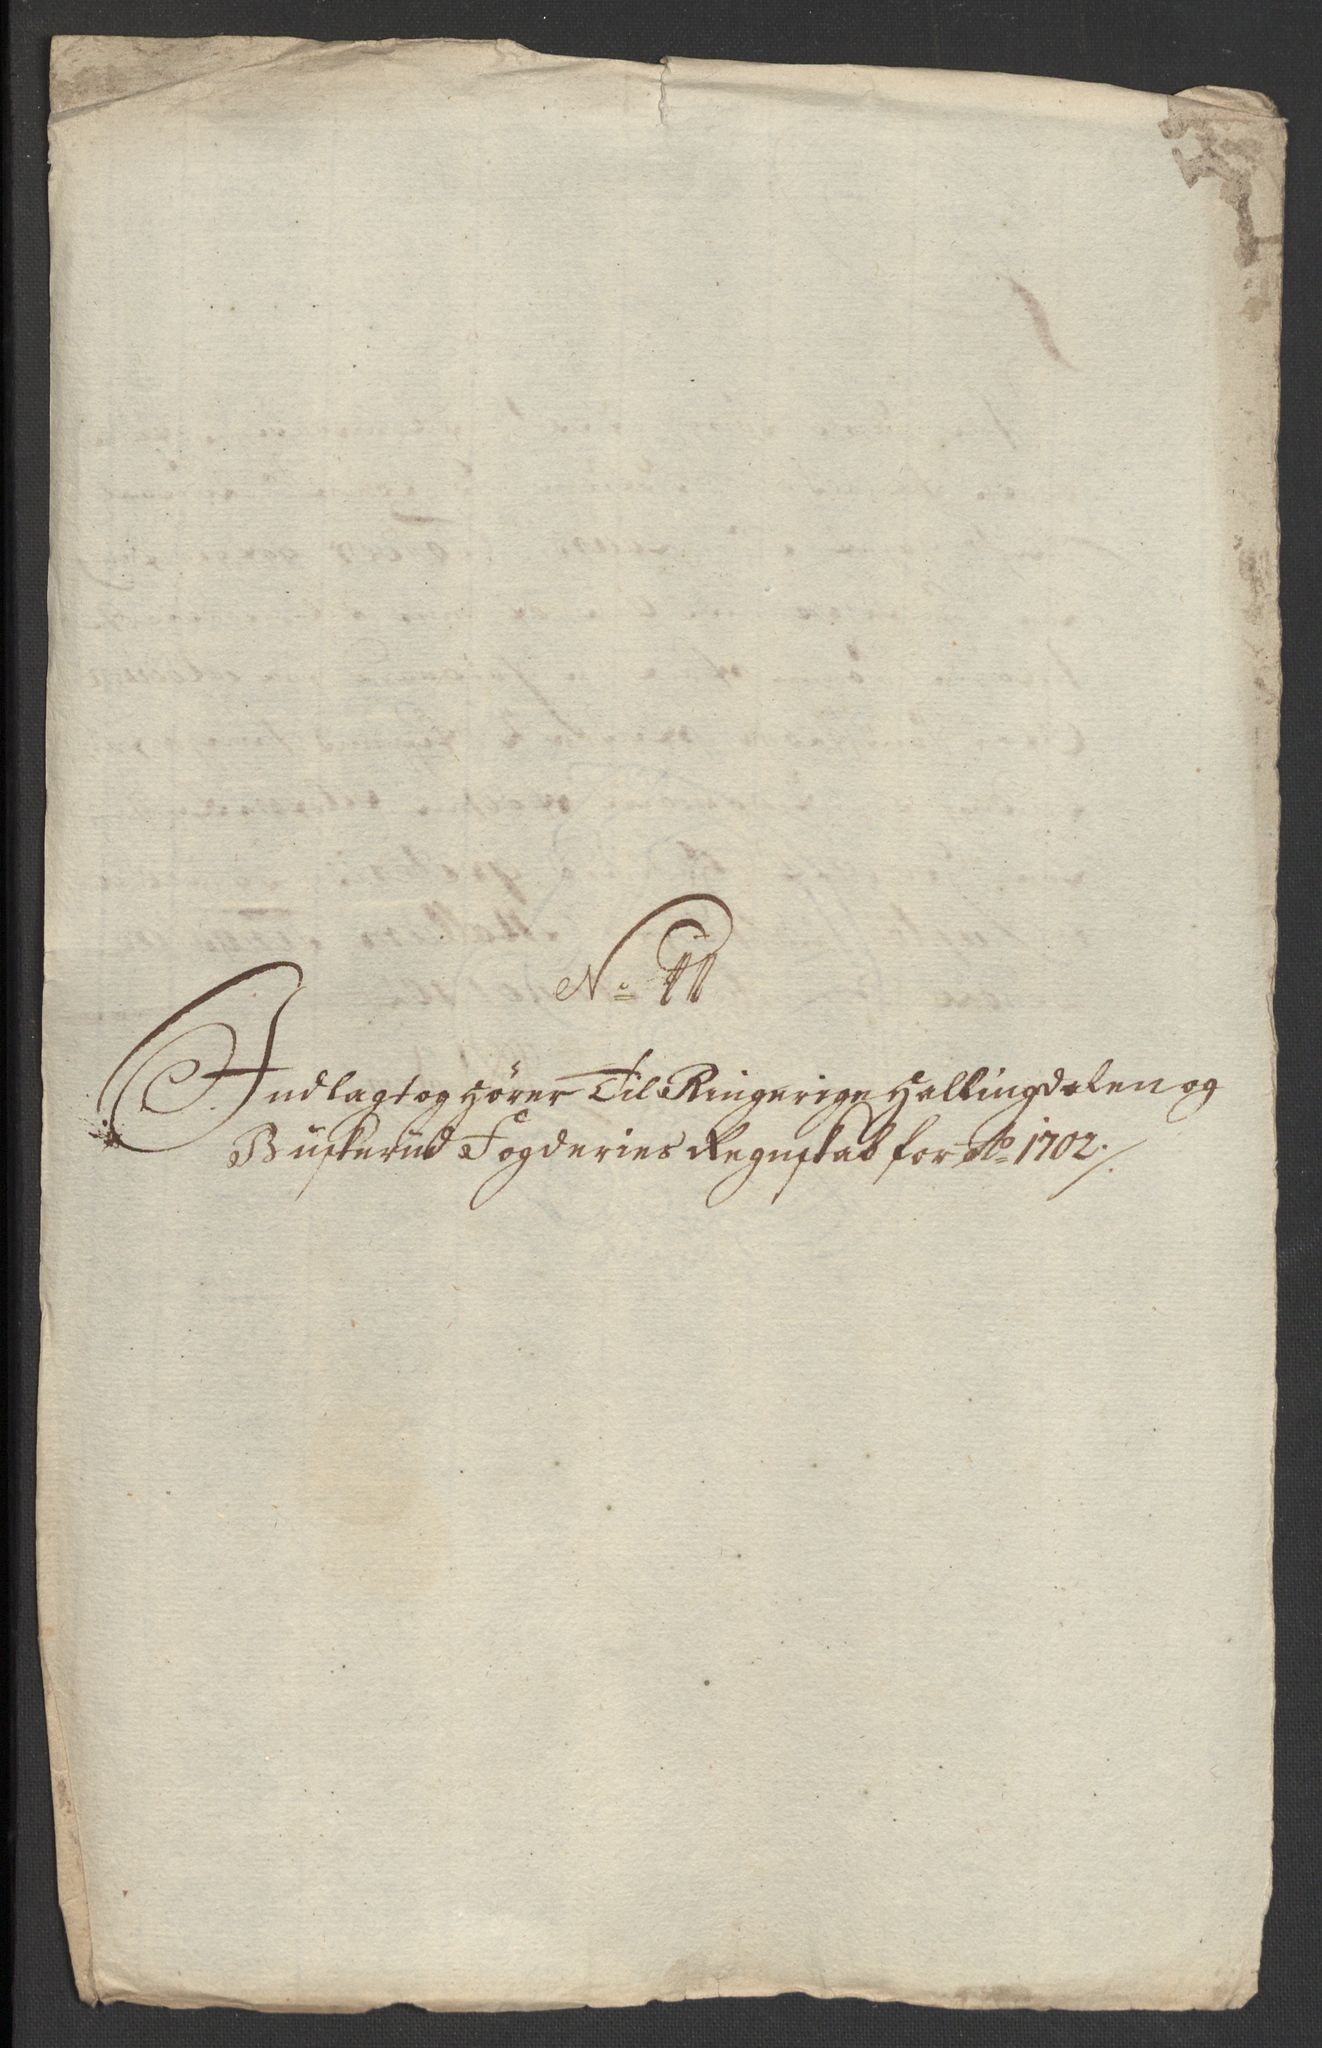 No 11
Indlagt og Hører Til Ringerige Hallingdalen og
Buskerüd Fogderies Regnskab for Ao 1702.